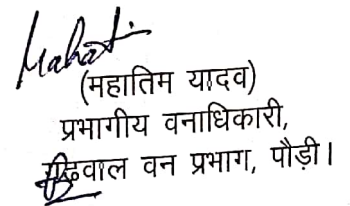 (महातिम यादव)
प्रभागीय वनाधिकारी,
गढ़वाल वन प्रभाग, पौड़ी।